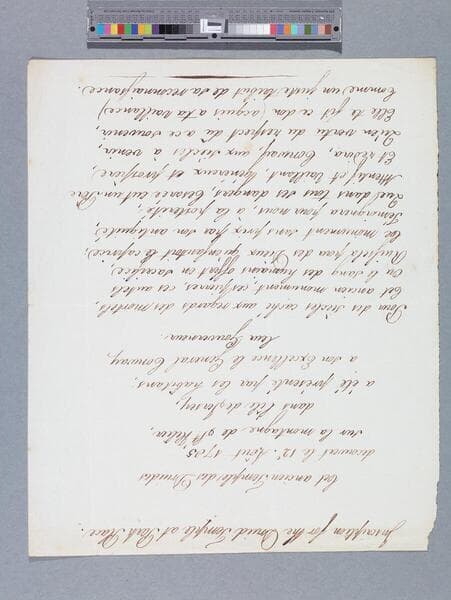 Inscription for the Druid Temple at Park Place.
Cet ancien Temple des Druides
découvert le 12e Août 1785
Sur la montagne de St Helier,
dans l'île de Jersey,
a été présenté par les habitans,
à Son Excellence le Général Conway,
leur Gouverneur.
Pour des siècles caché aux regards des mortels,
Cet ancien monument, ces pierres, ces autels
Où le sang des humains offert en sacrifice,
Ruissela pour des Dieux qu'enfantoit le caprice,
Ce monument sans prix par son antiquité,
Témoignera pour nous à la postérité,
Que dans tous ses dangers, Césarée eut un Père
Attentif et vaillant, généreux et prospère,
Et redira, Conway, aux siècles à venir,
Qu'en vertu du respect dû à ce souvenir,
Elle te fit ce don (acquis à ta vaillance)
Comme un juste tribut de sa reconnaissance.